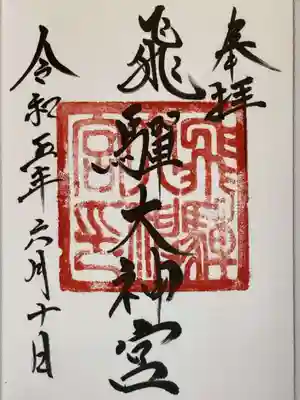 奉拝
飛騨大神宮
令和五年六月十日